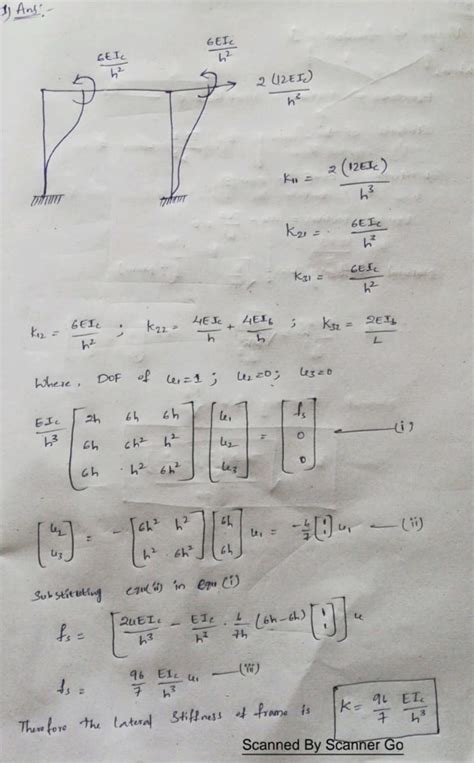 1) Ans:-
6EIc/h² 6EIc/h²
2(12EIc)/h³
K11 = 2(12EIc)/h³
K21 = 6EIc/h²
K31 = 6EIc/h²
K12 = 6EIc/h² ; K22 = 4EIc/h + 4EIb/h ; K32 = 2EIb/L
Where, DOF of u1=1 ; u2=0 ; u3=0
EIc/h³ [2h 6h 6h; 6h 6h² h²; 6h h² 6h²] [u1; u2; u3] = [fs; 0; 0] — (i)
[u2; u3] = - [6h² h²; h² 6h²] [6h; 6h] u1 = -6/7 [1; 1] u1 — (ii)
Substituting equ(ii) in equ(i)
fs = [24EIc/h³ - EIc/h² · 6/7h (6h-6h) [1; 1]] u
fs = 96/7 EIc/h³ u1 — (iii)
Therefore the lateral stiffness of frame is K = 96/7 EIc/h³
Scanned By Scanner Go